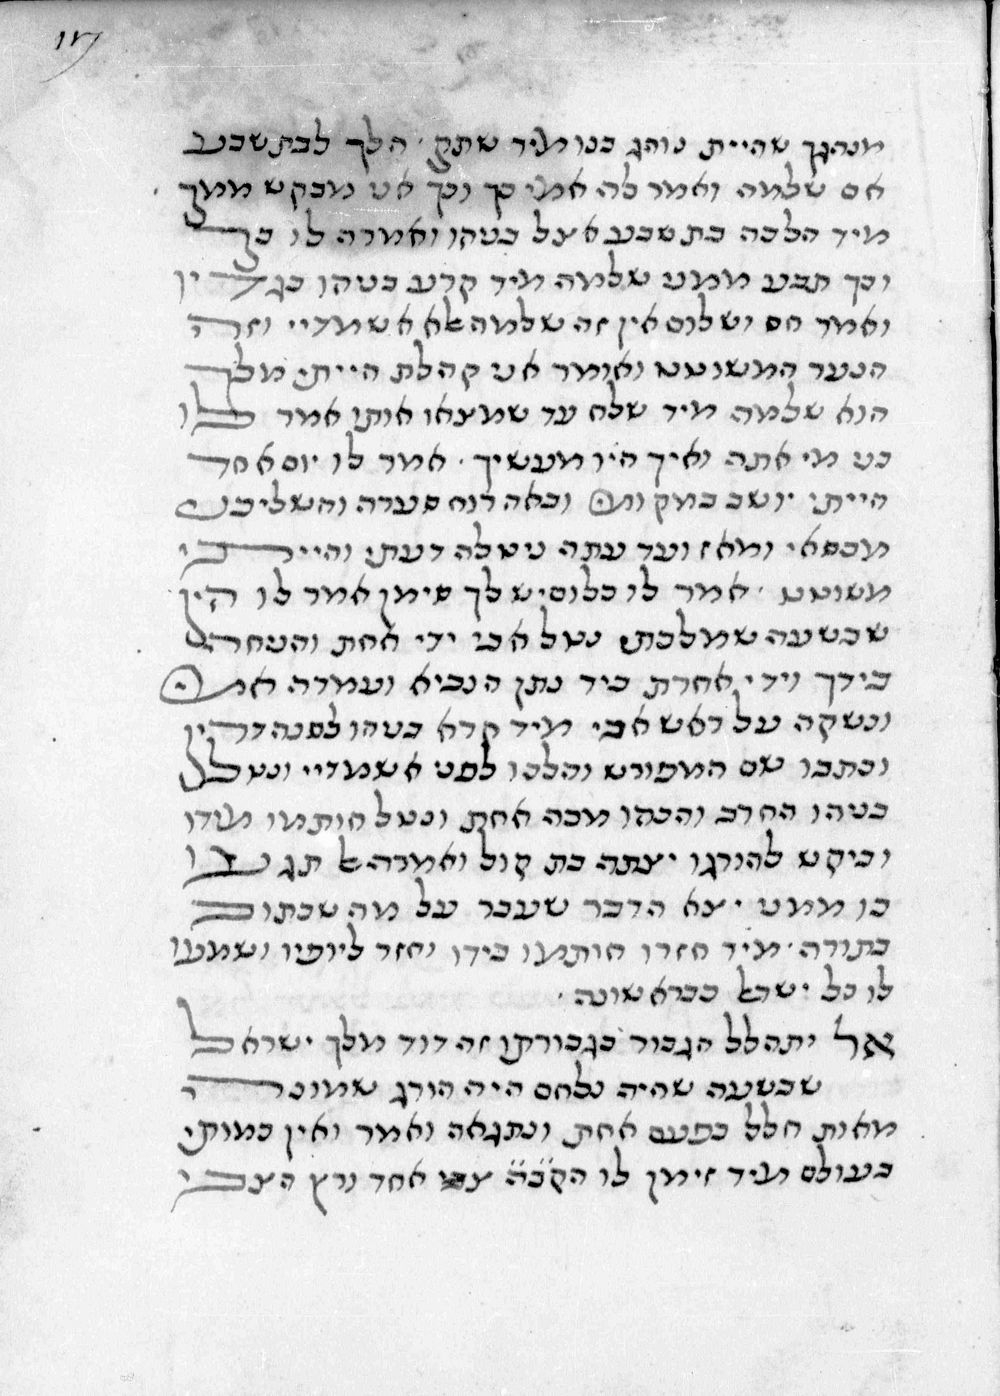 מנהגך שהיית נוהג בנו מיד שתק · הלך לבת שבע
אם שלמה ואמר לה אמי כך וכך אני מבקש ממך
מיד הלכה בת שבע אצל בניהו ואמרה לו כך
וכך תבע ממני שלמה מיד קרע בניהו בגדיו
ואמר חס ושלום אין זה שלמה אלא אשמדיי וזה
הנער המשוטט ואומר אני קהלת הייתי מלך
הוא שלמה מיד שלח עד שמצאו אותו אמר לו
בני מי אתה ואיך היו מעשיך · אמר לו יום אחד
הייתי יושב במקומי ובאה רוח סערה והשליכני
מכסאי ומאז ועד עתה ניטלה דעתי והייתי
משוטט · אמר לו כלום יש לך סימן אמר לו הין
שבשעה שמלכתי נטל אבי ידי אחת והניחה
בידך וידי אחרת ביד נתן הנביא ועמדה אמי
ונשקה על ראש אבי מיד קרא בניהו לסנהדרין
וכתבו שם המפורש והלכו לפני אשמדיי ונטל
בניהו החרב והכהו מכה אחת ונטל חותמו מידו
וביקש להורגו יצתה בת קול ואמרה אל תגע
בו ממני יצא הדבר שעבר על מה שכתוב
בתורה · מיד חזרו חותמו בידו וחזר ליופיו ושמעו
לו כל ישראל כבראשונה ·
אל יתהלל הגבור בגבורתו זה דוד מלך ישראל
שבשעה שהיה נלחם היה הורג שמונה
מאות חלל בפעם אחת ונתגאה ואמר ואין כמותי
בעולם מיד זימן לו הקב״ה צבי אחד ורץ הצבי